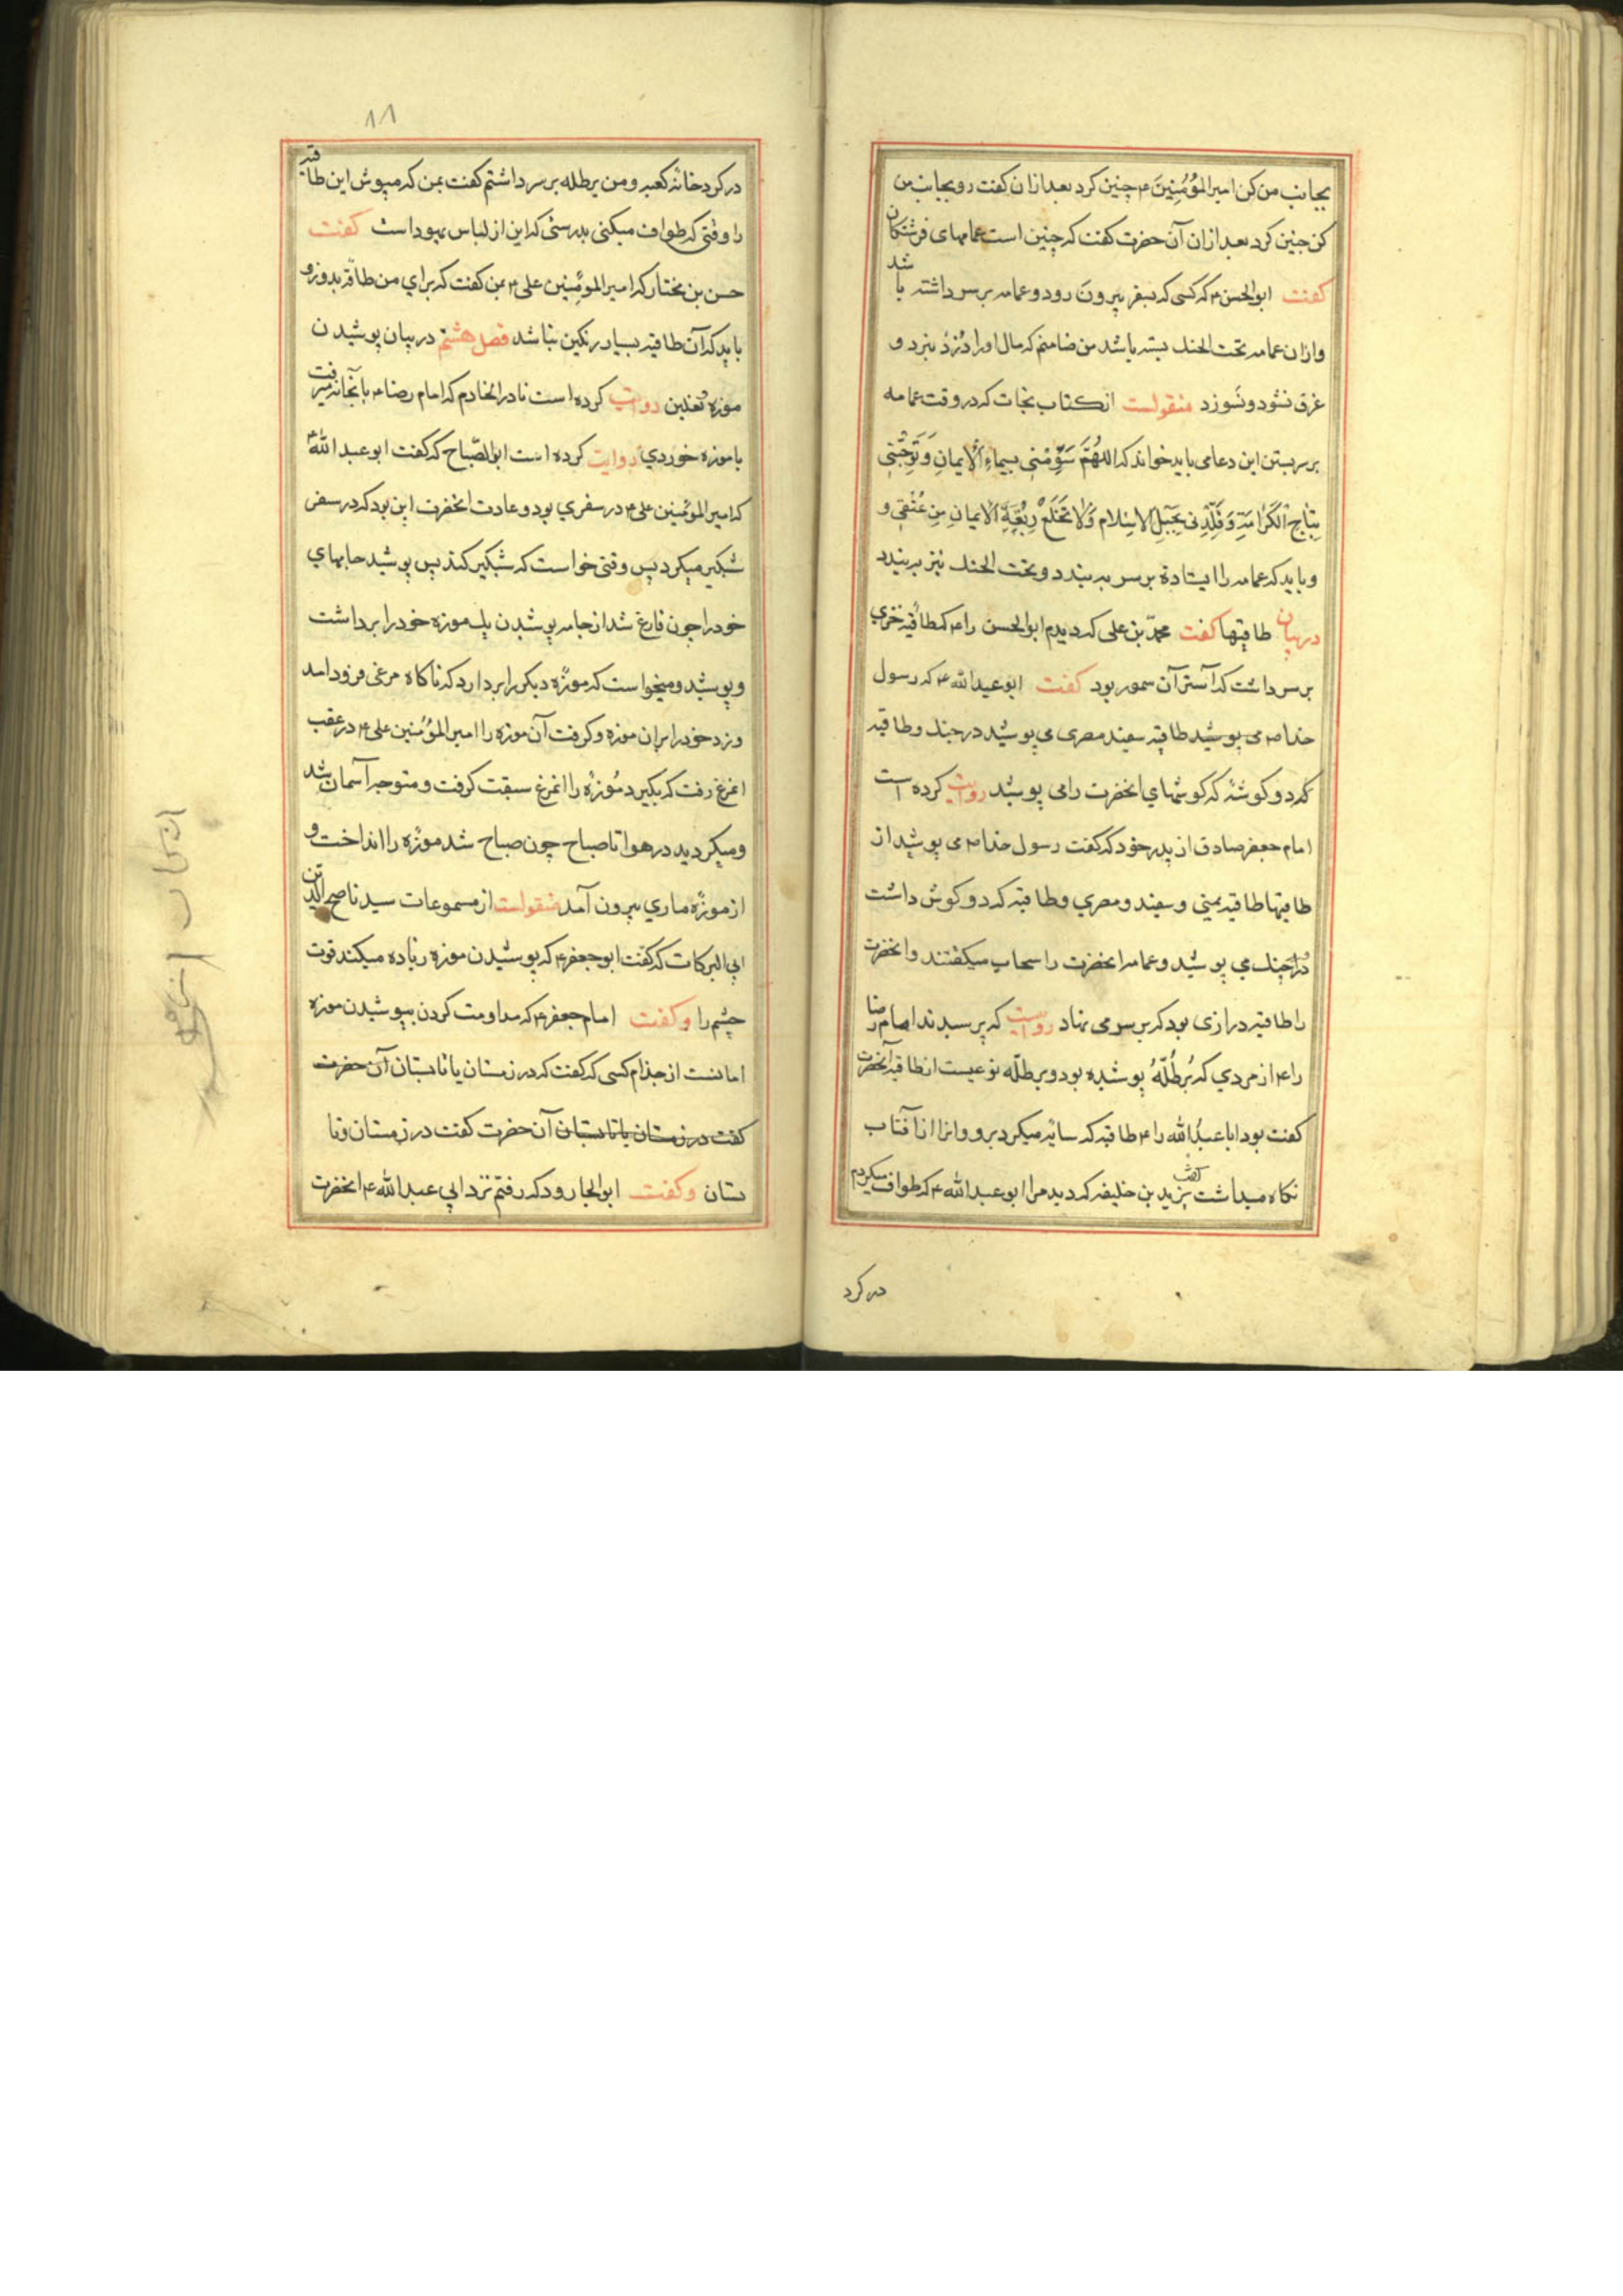 بجانب من کن امیر المؤمنین ع چنین کرد بعد ازان گفت رو بجانب من
کن چنین کرد بعد ازان آن حضرت گفت که چنین است عمامهای فرشتکان
کفت ابو الحسن ع که کسی که بسفر بیرون رود و عمامه بر سر داشته باشد
و ازان عمامه تحت الحنک بسته باشد من ضامنم که مال او را دزد نبرد و
غرق نشود و نسوزد منقولست از کتاب نجات که در وقت عمامه
بر سر بستن این دعا می باید خواند که اللهم سومنی بسیماء الایمان و توجنی
بتاج الکرامة و قلدنی بحبل الاسلام و لا تخلع ربقة الایمان من عنقی و
و باید که عمامه را ایستاده بر سر به بندد و تحت الحنک نیز به بندد
در بیان طاقیها کفت محمد بن علی که دیدم ابو الحسن را ع که طاقیه خزی
بر سر داشت که آستر آن سمور بود کفت ابو عبد الله ع که رسول
خدا ص می پوشید طاقیه سفید مصری می پوشید در جنک و طاقیه
که دو کوشه که کوشهای انحضرت را می پوشید روایت کرده است
امام جعفر صادق از پدر خود که کفت رسول خدا ص می پوشید از
طاقیها طاقیه یمنی و سفید و مصری و طاقیه که دو کوش داشت
در جنک می پوشید و عمامه انحضرت را سحاب میکفتند و انحضرت
را طاقیه درازی بود که بر سر می نهاد روایست که پرسیدند امام رضا
را ع از مردی که برطله پوشیده بود و برطله نوعیست از طاقیه آنحضرت
کفت بود ابا عبد الله را ع طاقیه که سایه میکرد برو و انرا از آفتاب
نکاه میداشت کفت یزید بن خلیفه که دید مرا ابو عبد الله ع که طواف میکردم
در کرد
۸۸
در کرد خانه کعبه و من برطله بر سر داشتم کفت بمن که مپوش این طاقیه
را وقتی که طواف میکنی بدرستی که این از لباس یهود است کفت
حسن بن مختار که امیر المومنین علی ع بمن کفت که برای من طاقه بدوز و
باید که آن طاقیه بسیار رنکین نباشد فصل هشتم در بیان پوشیدن
موزه و نعلین روایت کرده است نادر الخادم که امام رضا ع بآنجانه میرفت
با موزه خوردی روایت کرده است ابو الصباح که کفت ابو عبد الله ع
که امیر المؤمنین علی ع در سفری بود و عادت انحضرت این بود که در سفر
شبکیر میکرد پس وقتی خواست که شبکیر کند پس پوشید جامهای
خود را چون فارغ شد از جامه پوشیدن یک موزه خود را برداشت
و پوشید و میخواست که موزه دیکر را بردارد که ناکاه مرغی فرود امد
و زد خود را بران موزه و کرفت آن موزه را امیر المؤمنین علی ع در عقب
انمرغ رفت که بکیرد موزه را انمرغ سبقت کرفت و متوجه آسمان شد
و میکردید در هوا تا صباح چون صباح شد موزه را انداخت و
از موزه ماری بیرون آمد منقولست از مسموعات سید ناصح الدین
ابی البرکات که کفت ابو جعفر ع که پوشیدن موزه زیاده میکند قوت
چشم را و کفت امام جعفر ع که مداومت کردن بپوشیدن موزه
امانست از جذام کسی که کفت که در زمستان یا تابستان آن حضرت
کفت در زمستان یا تابستان آن حضرت کفت در زمستان و تا
بستان و کفت ابو الجارود که رفتم نزد ابی عبد الله ع انحضرت